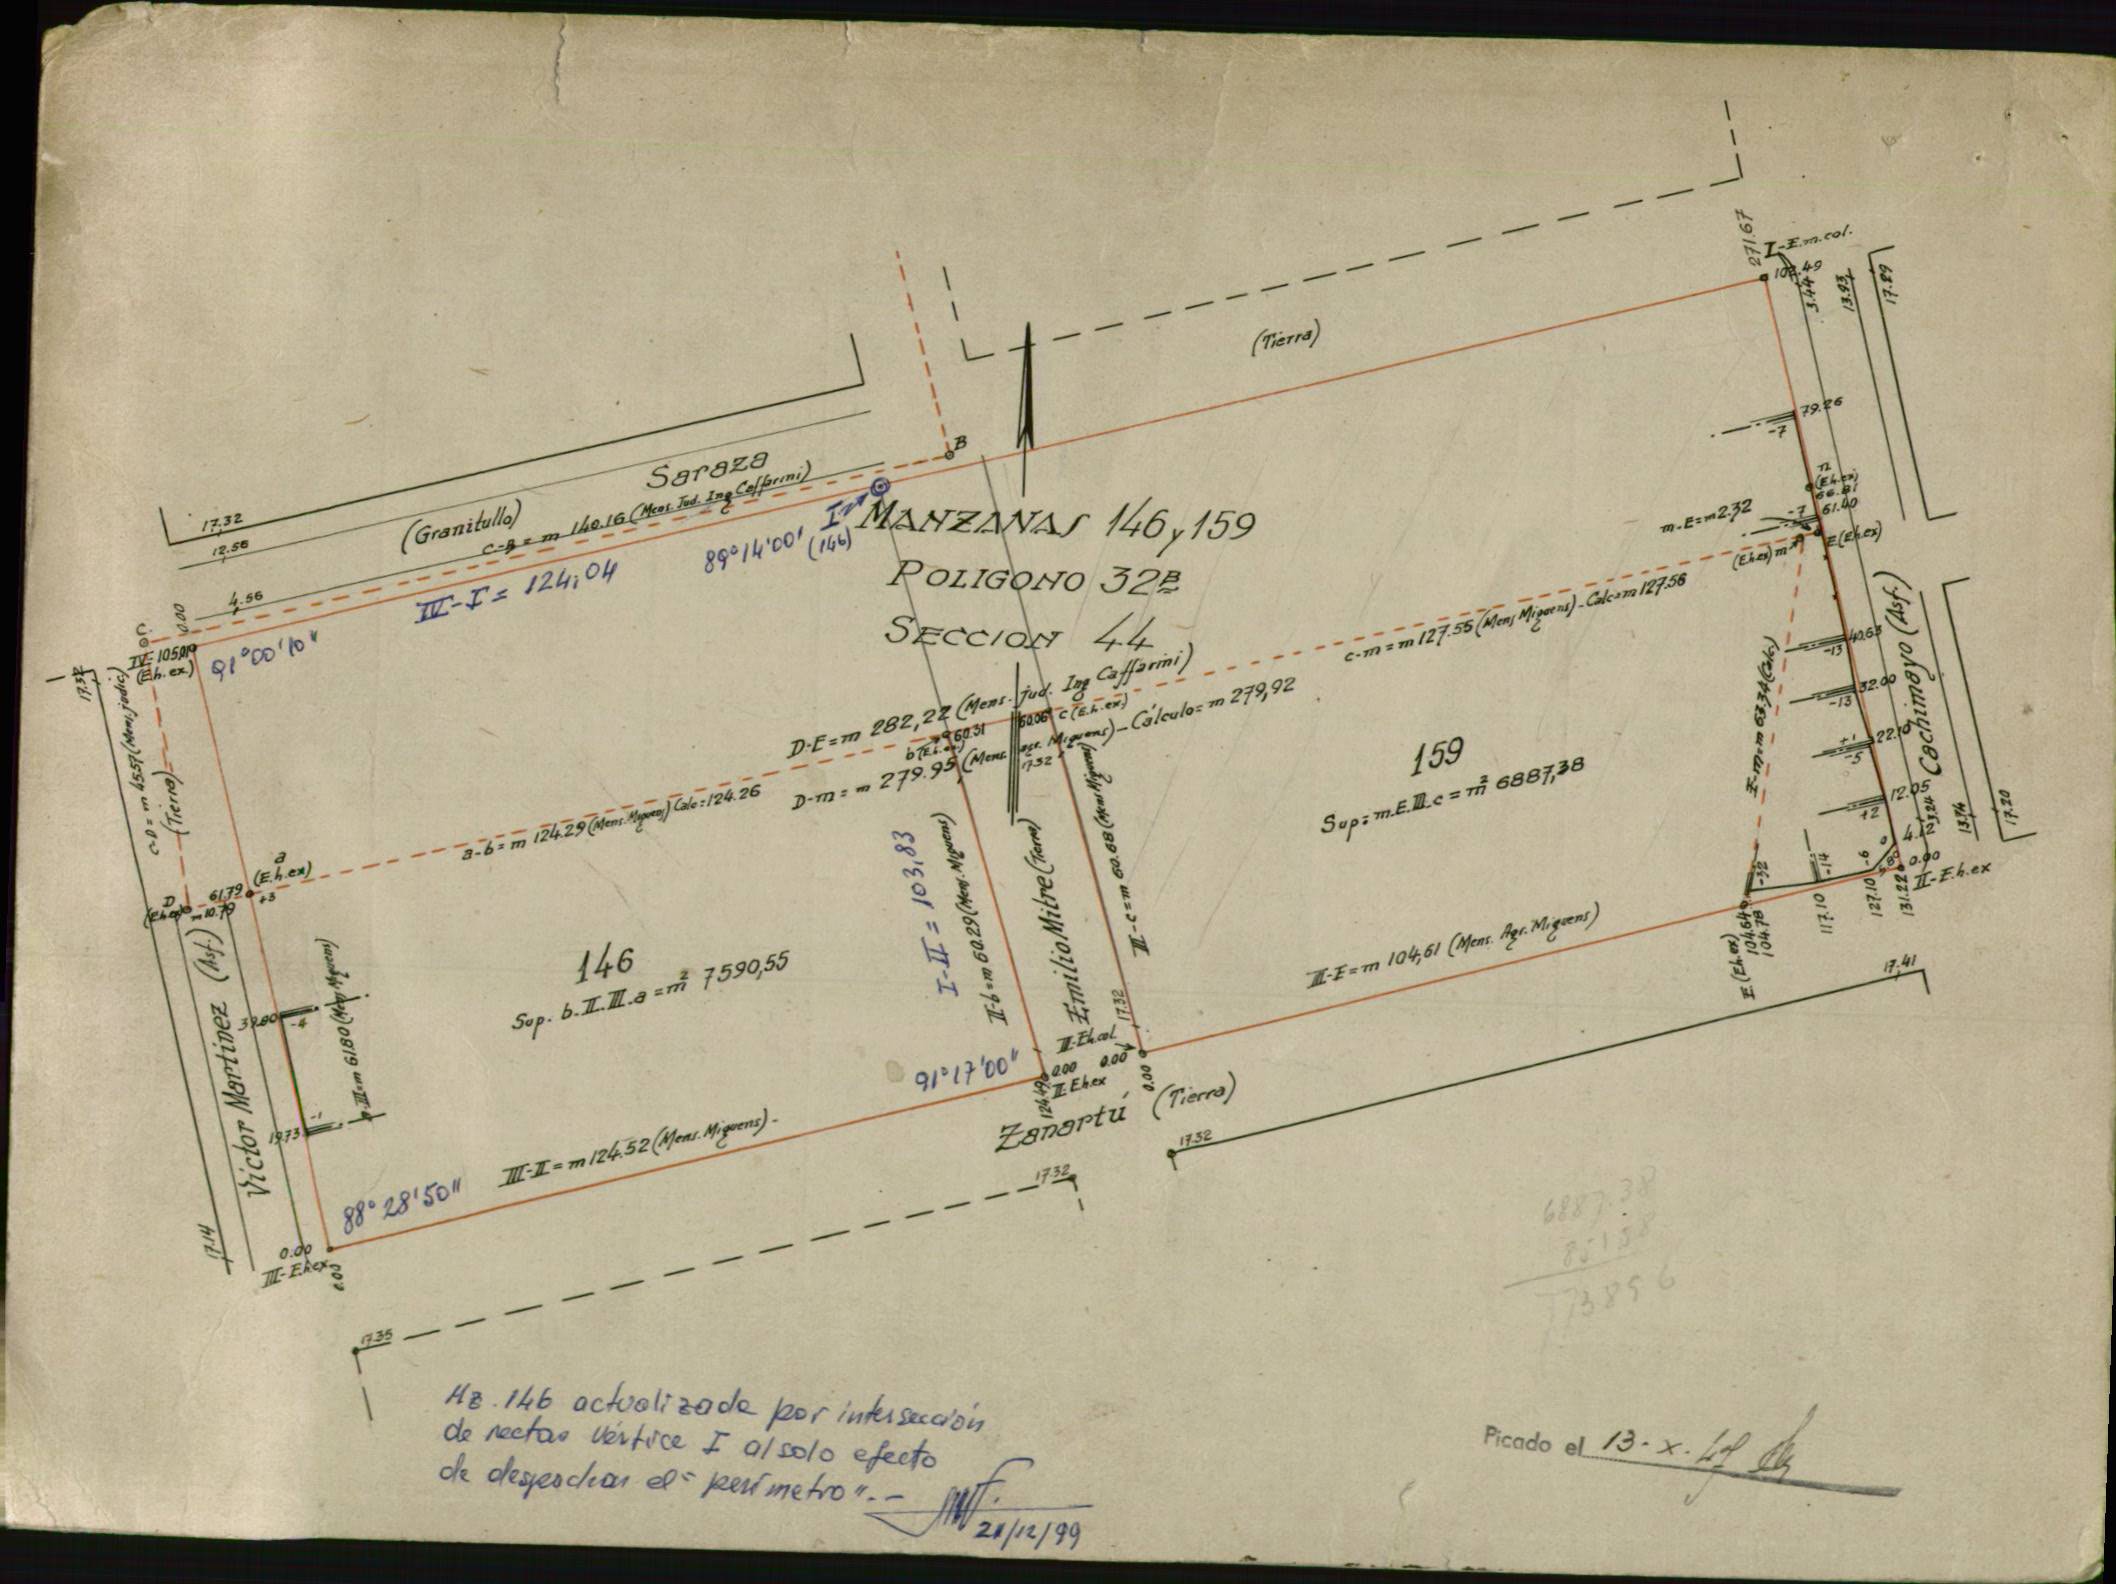 271.67
I-E.m.col.
102.49
3.44
13.93
17.29
(Tierra)
79.26
-7
B
Saraza
17.32
12.56
(Granitullo)
C-B = m 140.16 (Mens. Jud. Ing Caffarini)
I
(146)
89°14'00"
MANZANAS 146 y 159
POLIGONO 32B
SECCION 44
n
(E.h.ex)
66.81
-7
61.40
m-E=m2.32
(E.h.ex) m
E (E.h.ex)
4.56
0.00
IV-I = 124,04
C
IV-105.01
(E.h.ex)
91°00'10"
17.32
C-D = m 45.57 (Mens. judic)
(Tierra)
D-E = m 282,22 (Mens. jud. Ing Caffarini)
D-m = m 279.95 (Mens. agr. Miguens) - Cálculo = m 279,92
C-m = m 127.55 (Mens Miguens) - Calc = m 127.56
b (E.h.ex)
60.31
60.06
C (E.h.ex)
17.32
a-b = m 124.29 (Mens. Miguens) Calc = 124.26
E-m = m 63,34 (Calc)
40.63
-13
32.00
-13
+1
22.10
-5
12.05
+2
Cachimayo (Asf.)
3.24
13.74
17.20
159
Sup: m.E.III.c = m² 6887,38
a
(E.h.ex)
61.79
+3
D
(E.h.ex)
m 10.79
146
Sup. b.II.III.a = m² 7590,55
I-II = 103,83
II-b = m 60.29 (Mens. Miguens)
Emilio Mitre (Tierra)
III-c = m 60.68 (Mens Miguens)
4.12
0
-6
0.00
II-E.h.ex
-32
-14
117.10
127.10
131.22
E (E.h.ex)
104.64
104.78
III-E = m 104,61 (Mens. Agr. Miguens)
17.41
Victor Martinez (Asf.)
39.80
-4
a-III = m 61.80 (Mens Miguens)
19.73
-1
17.14
17.32
III-E.h.col.
0.00
0.00
0.00
II E.h.ex
124.49
91°17'00"
Zanartú (Tierra)
17.32
17.32
III-II = m 124.52 (Mens. Miguens)-
88°28'50"
0.00
III-E.h.ex
0.00
17.35
6887.38
Mz. 146 actualizada por intersección
de rectas vértice I al solo efecto
de despachar el "perímetro".-
21/12/99
Picado el 13-X-